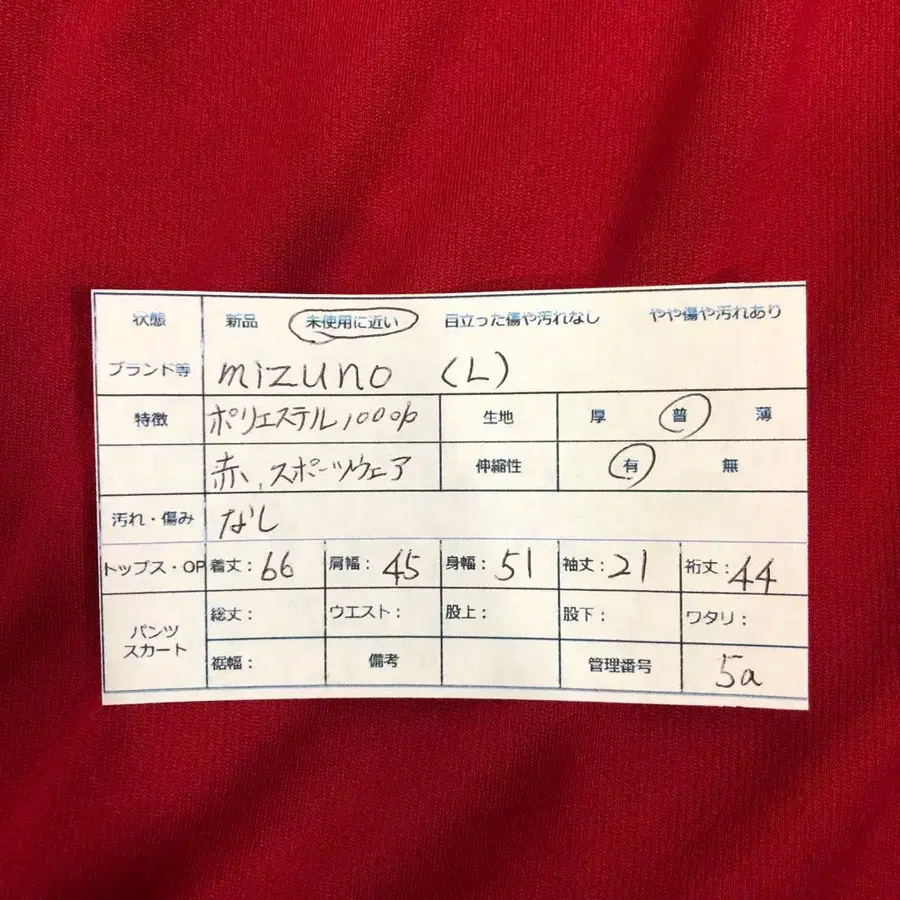 状態 新品 未使用に近い 目立った傷や汚れなし やや傷や汚れあり
ブランド等 mizuno (L)
特徴 ポリエステル100% 生地 厚 普 薄
赤、スポーツウェア 伸縮性 有 無
汚れ・傷み なし
トップス・OP 着丈：66 肩幅：45 身幅：51 袖丈：21 裄丈：44
パンツ スカート 総丈： ウエスト： 股上： 股下： ワタリ：
裾幅： 備考 管理番号 5a